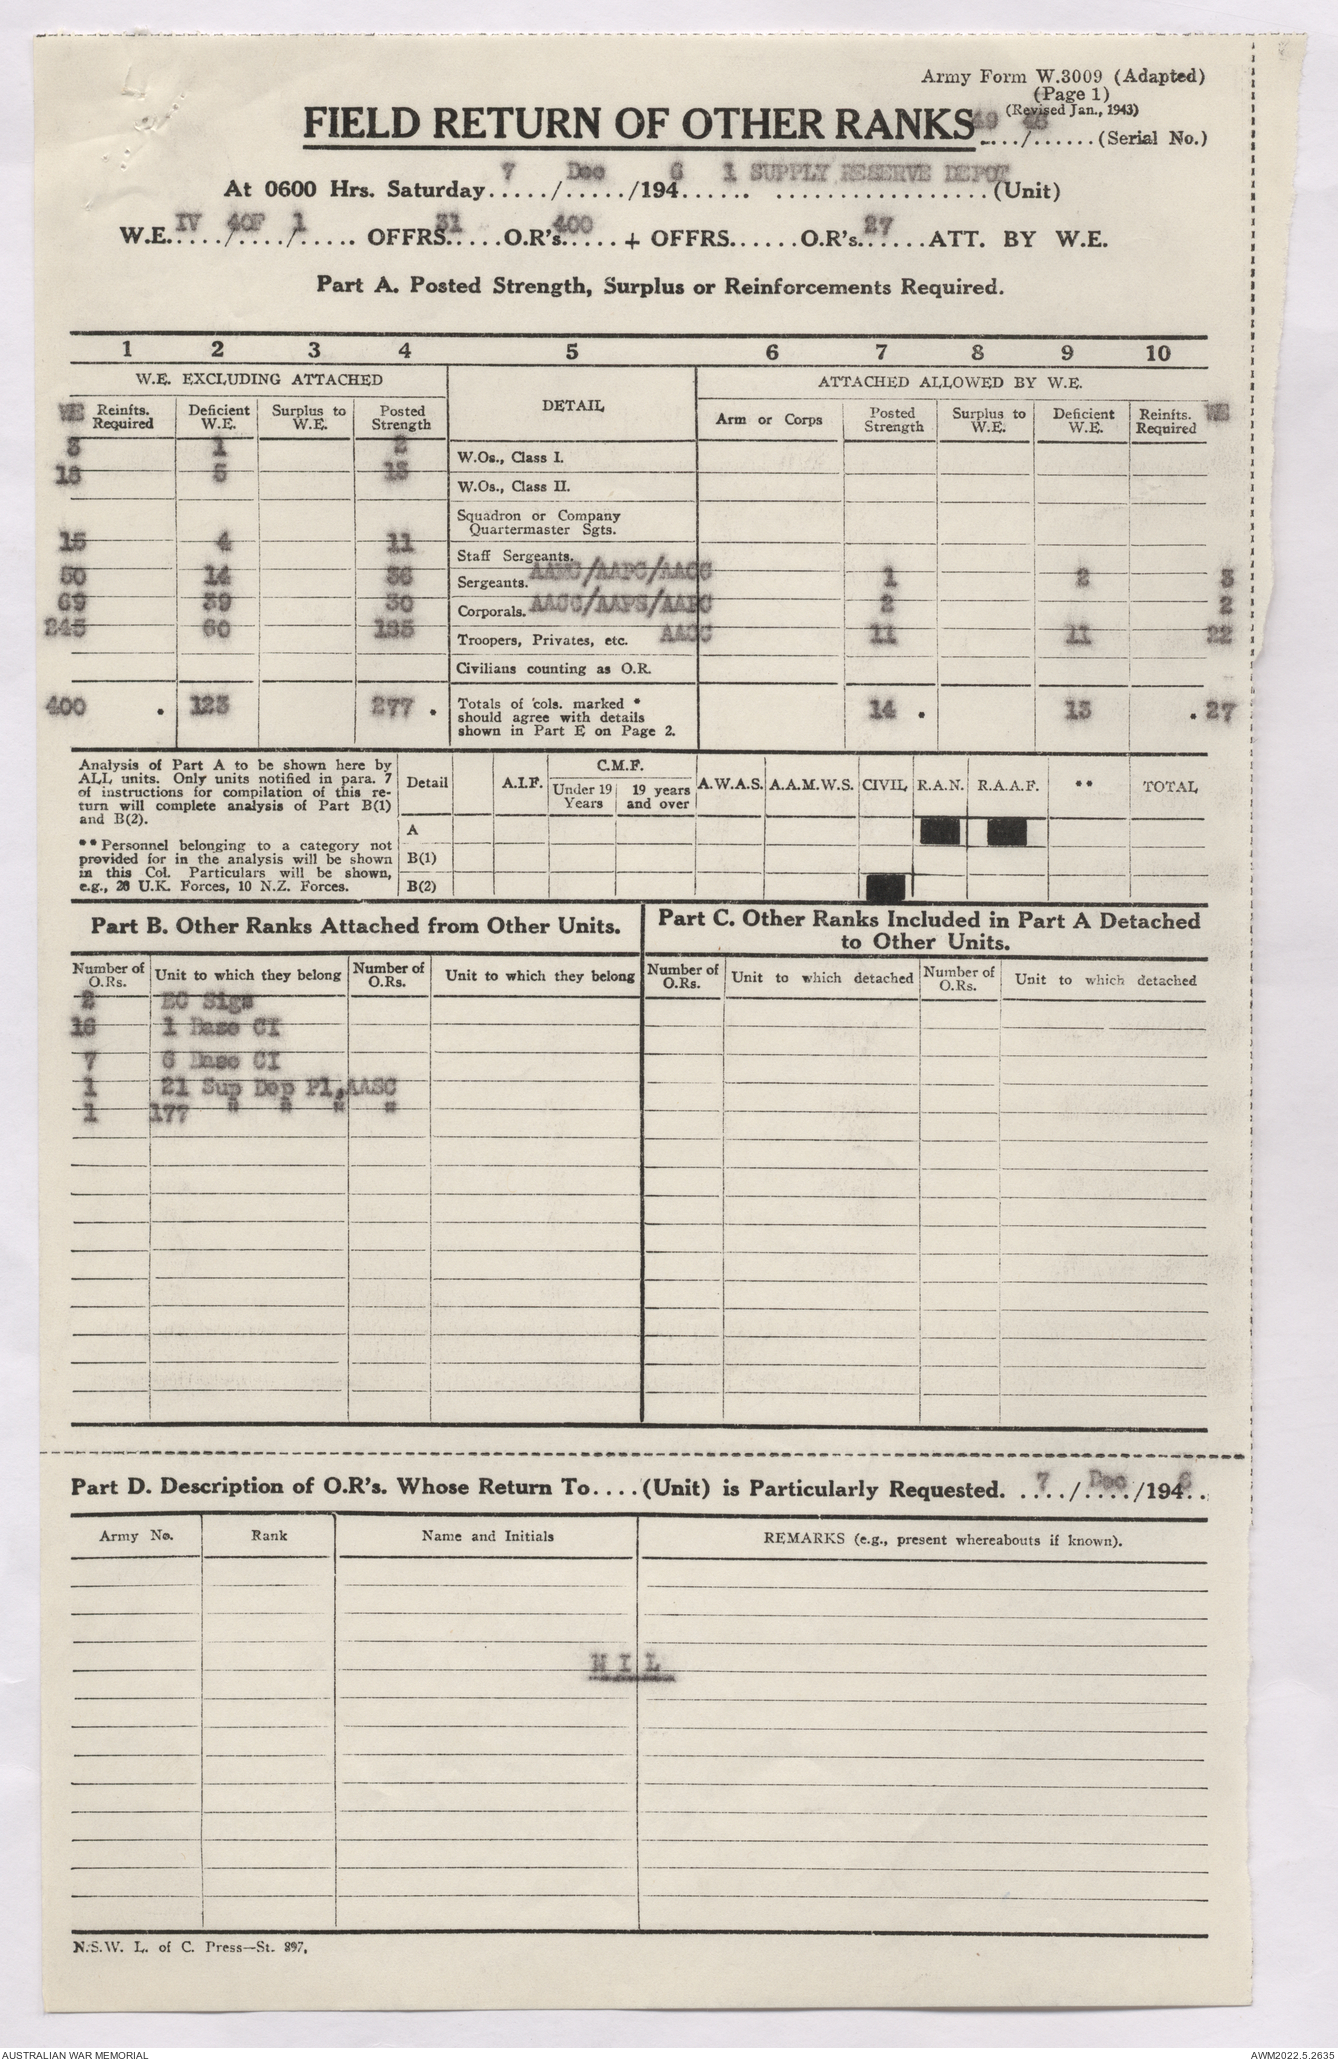 Army Form W.3009 (Adapted)
(Page 1)
(Revised Jan., 1943)
FIELD RETURN OF OTHER RANKS 49 / 46 (Serial No.)
At 0600 Hrs. Saturday 7 / Dec /194 6 1 SUPPLY RESERVE DEPOT (Unit)
W.E. IV / 40F / 1 OFFRS. 31 O.R's. 400 + OFFRS...... O.R's. 27 ATT. BY W.E.
Part A. Posted Strength, Surplus or Reinforcements Required.
1 2 3 4 5 6 7 8 9 10
W.E. EXCLUDING ATTACHED DETAIL ATTACHED ALLOWED BY W.E.
WE Reinfts. Required Deficient W.E. Surplus to W.E. Posted Strength Arm or Corps Posted Strength Surplus to W.E. Deficient W.E. Reinfts. Required WE
3 1 2 W.Os., Class I.
18 5 13 W.Os., Class II.
Squadron or Company
Quartermaster Sgts.
15 4 11 Staff Sergeants.
50 14 36 Sergeants. AAMC/AAPC/AACC 1 2 3
69 39 30 Corporals. AACC/AAPS/AAPC 2 2
245 60 185 Troopers, Privates, etc. AACC 11 11 22
Civilians counting as O.R.
400 . 123 277 . Totals of cols. marked * 14 . 13 . 27
should agree with details
shown in Part E on Page 2.
Analysis of Part A to be shown here by
ALL units. Only units notified in para. 7
of instructions for compilation of this re-
turn will complete analysis of Part B(1)
and B(2).
** Personnel belonging to a category not
provided for in the analysis will be shown
in this Col. Particulars will be shown,
e.g., 20 U.K. Forces, 10 N.Z. Forces.
Detail A.I.F. C.M.F. A.W.A.S. A.A.M.W.S. CIVIL R.A.N. R.A.A.F. ** TOTAL
Under 19 Years 19 years and over
A
B(1)
B(2)
Part B. Other Ranks Attached from Other Units.
Number of O.Rs. Unit to which they belong Number of O.Rs. Unit to which they belong
2 EC Sigs
16 1 Base CI
7 6 Base CI
1 21 Sup Dep Pl,AASC
1 177 " " " "
Part C. Other Ranks Included in Part A Detached
to Other Units.
Number of O.Rs. Unit to which detached Number of O.Rs. Unit to which detached
Part D. Description of O.R's. Whose Return To....(Unit) is Particularly Requested. 7 / Dec /194 6
Army No. Rank Name and Initials REMARKS (e.g., present whereabouts if known).
N I L
N.S.W. L. of C. Press—St. 897.
AUSTRALIAN WAR MEMORIAL AWM2022.5.2635